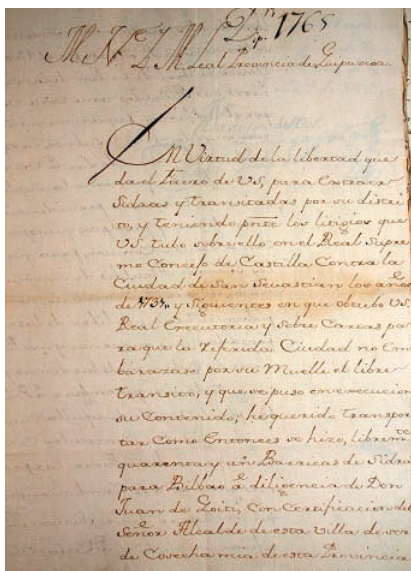 1765
M. N. y M. Leal Provincia de Guipuzcoa
En Virtud de la libertad que
da el fuero de VS, para Extraer
Sidras y transitadas por su distri
to, y teniendo pnte los litigios que
VS. tubo sobre ello en el Real Supre
mo Consejo de Castilla Contra la
Ciudad de San Sevastian los años
de 1734 y siguientes en que obtubo VS.
Real Executoria y Sobre Cartas pa
ra que la referida Ciudad no Em
barazase por su Muelle el libre
transito, y que se puso en execucion
su Contenido; he querido transpor
tar Como Entonces se hizo, libremte
quarenta y un Barricas de Sidra
para Bilbao á diligencia de Don
Juan de Goiti, Con Certificacion del
Señor Alcalde de esta Villa de ser
de Cosecha mia de esta Provincia